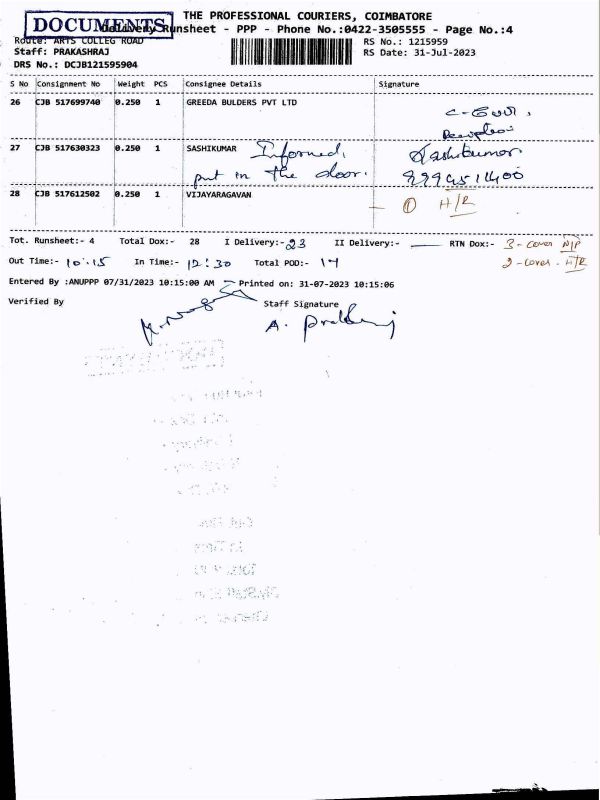 THE PROFESSIONAL COURIERS, COIMBATORE
DOCUMENTS
Delivery Runsheet - PPP - Phone No.:0422-3505555 - Page No.:4
Route: ARTS COLLEG ROAD
RS No.: 1215959
Staff: PRAKASHRAJ
RS Date: 31-Jul-2023
DRS No.: DCJB121595904
S No Consignment No Weight PCS Consignee Details Signature
26 CJB 517699740 0.250 1 GREEDA BULDERS PVT LTD
27 CJB 517630323 0.250 1 SASHIKUMAR Informed, Sashikumar
put in the door.
28 CJB 517612502 0.250 1 VIJAYARAGAVAN
① H/R
Tot. Runsheet:- 4 Total Dox:- 28 I Delivery:- 23 II Delivery:- RTN Dox:- 3- cover N/P
2-cover - H/R
Out Time:- 10:15 In Time:- 12:30 Total POD:-
Entered By :ANUPPP 07/31/2023 10:15:00 AM Printed on: 31-07-2023 10:15:06
Verified By Staff Signature